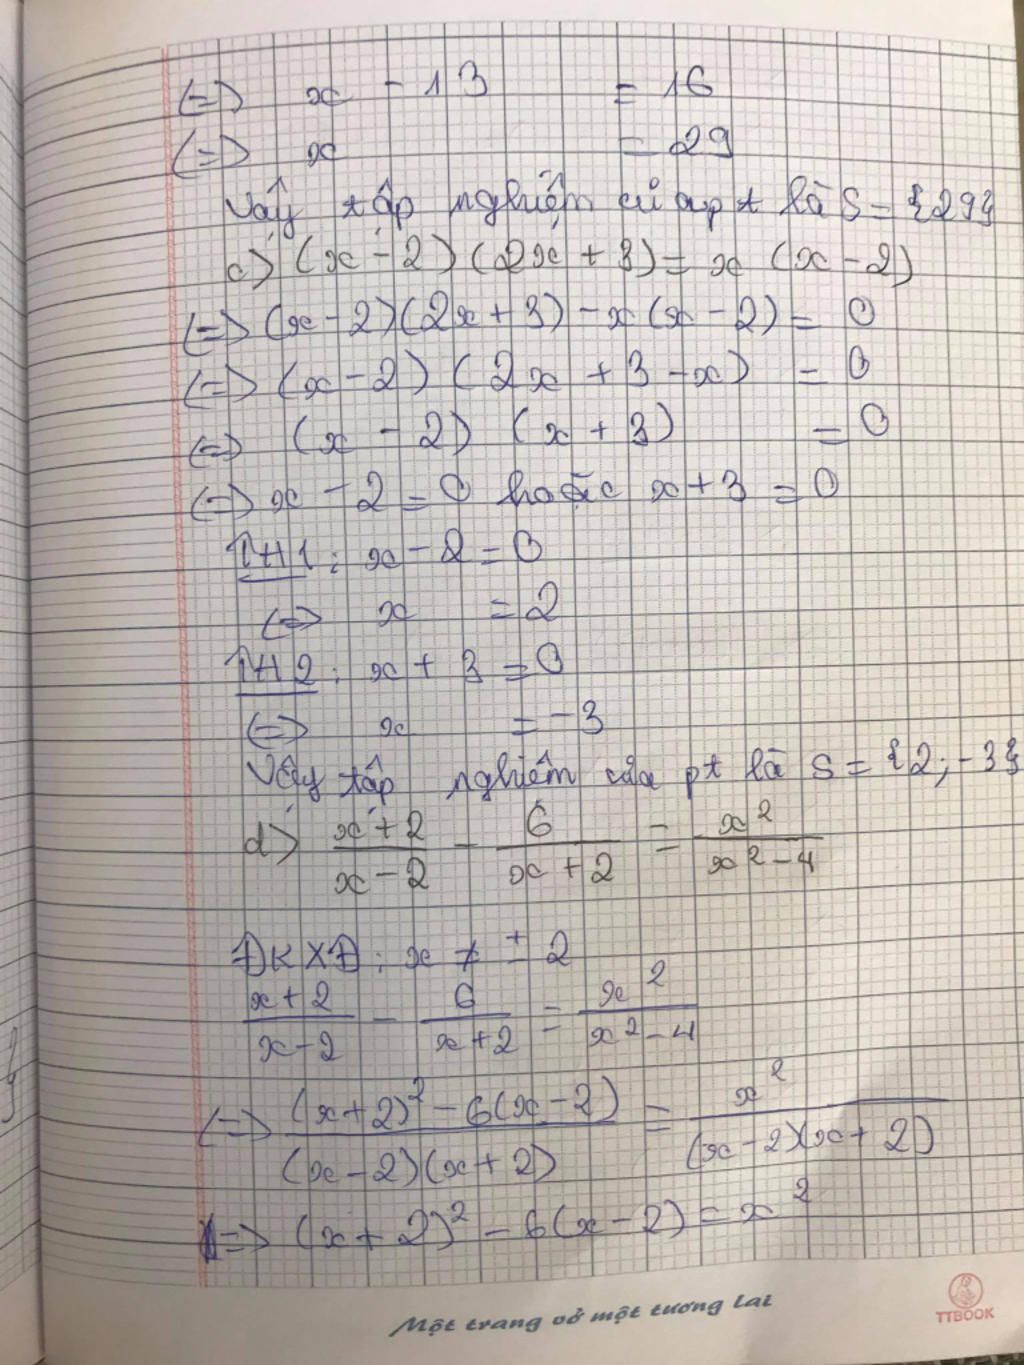 <=> x - 13 = 16
<=> x = 29
Vậy tập nghiệm của pt là S = {29}
c) (x - 2) (2x + 3) = x (x - 2)
<=> (x - 2)(2x + 3) - x (x - 2) = 0
<=> (x - 2) (2x + 3 - x) = 0
<=> (x - 2) (x + 3) = 0
<=> x - 2 = 0 hoặc x + 3 = 0
TH1 : x - 2 = 0
<=> x = 2
TH2 : x + 3 = 0
<=> x = -3
Vậy tập nghiệm của pt là S = {2; -3}
d) \frac{x+2}{x-2} - \frac{6}{x+2} = \frac{x^2}{x^2-4}
ĐKXĐ : x ≠ ± 2
\frac{x+2}{x-2} - \frac{6}{x+2} = \frac{x^2}{x^2-4}
<=> \frac{(x+2)^2 - 6(x-2)}{(x-2)(x+2)} = \frac{x^2}{(x-2)(x+2)}
=> (x + 2)^2 - 6(x - 2) = x^2
Một trang vở một tương lai
TTBOOK